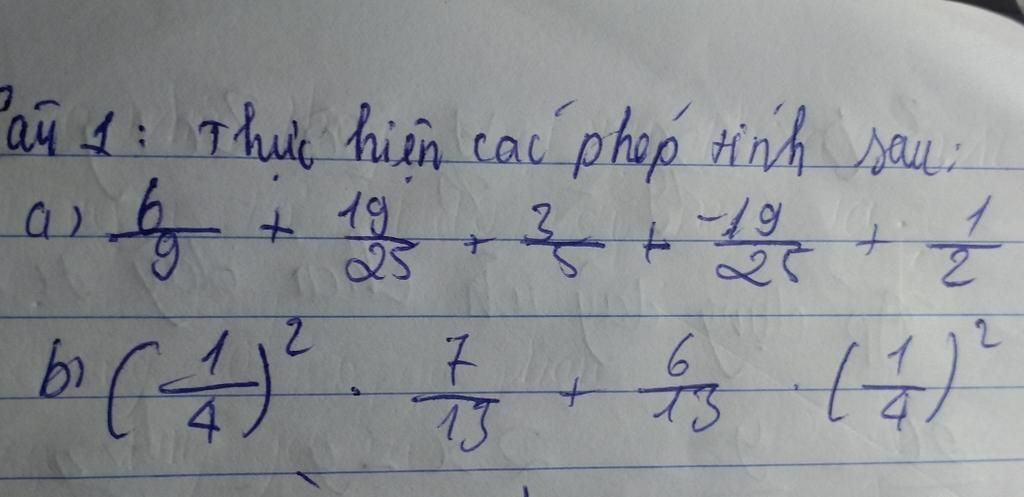 Câu 1: Thực hiện các phép tính sau:
a) 6/9 + 19/25 + 3/5 + -19/25 + 1/2
b) (1/4)² . 7/13 + 6/13 . (1/4)²